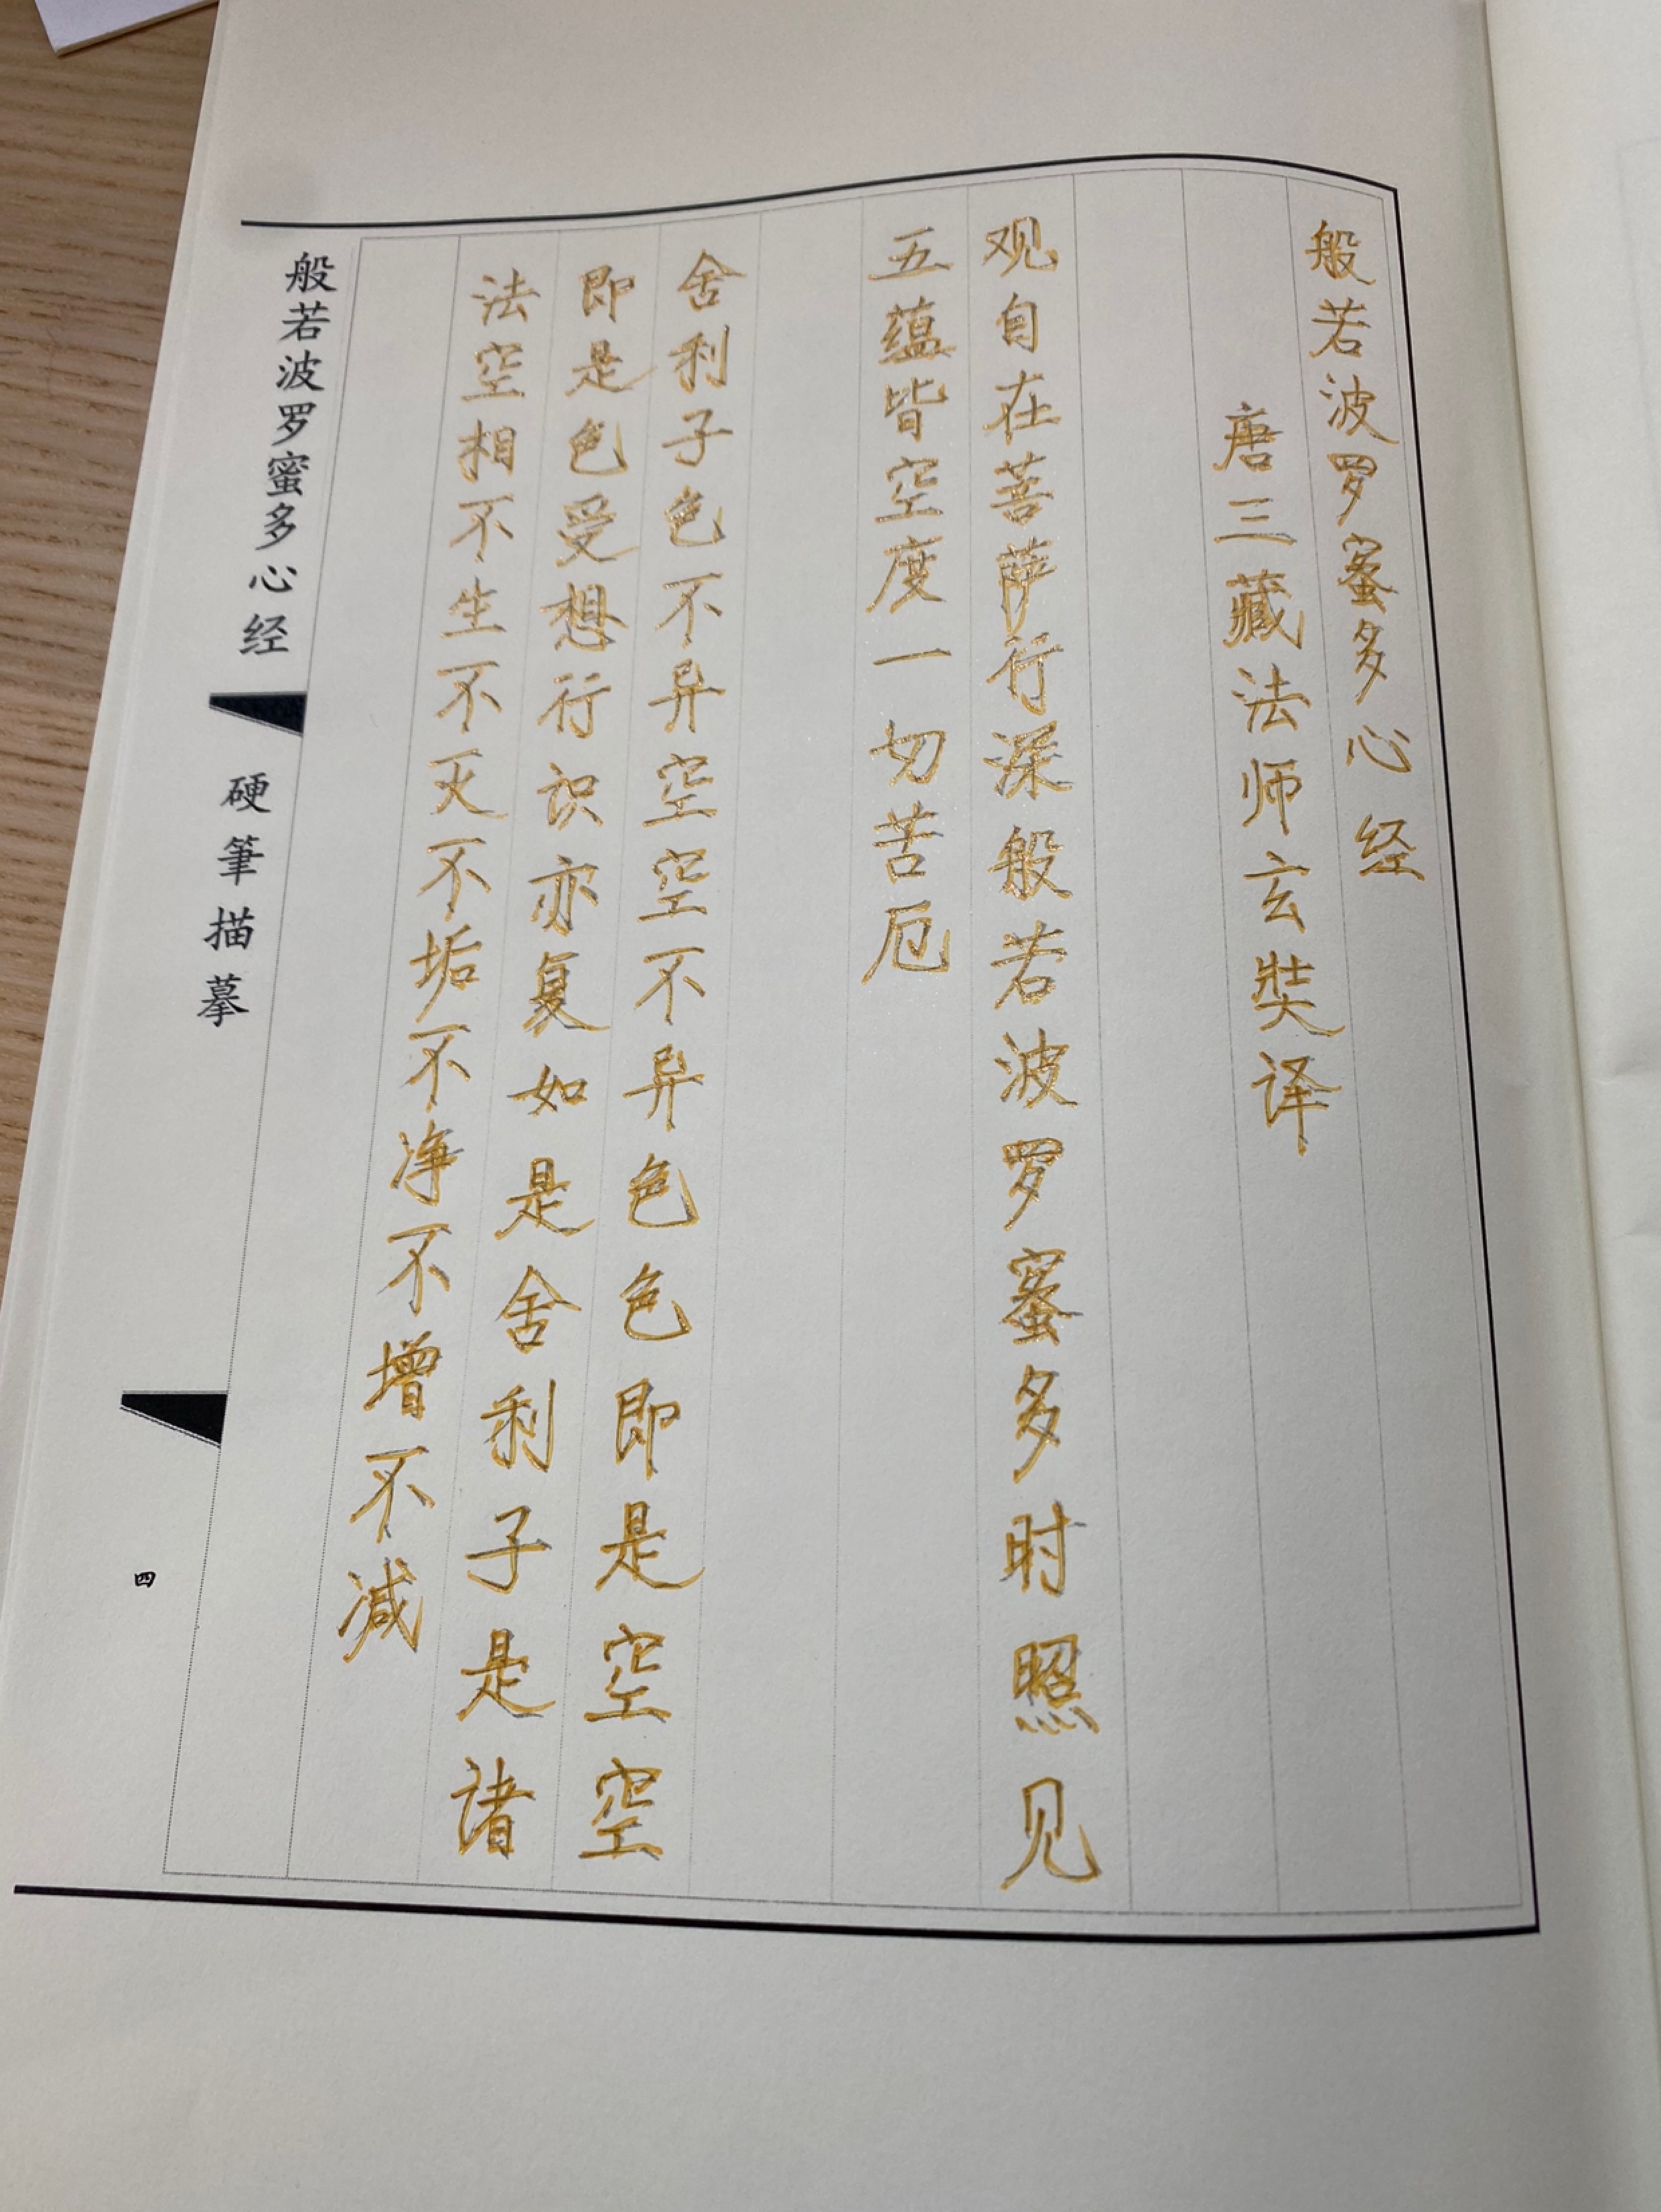 般若波罗蜜多心经
唐三藏法师玄奘译
观自在菩萨行深般若波罗蜜多时照见
五蕴皆空度一切苦厄
舍利子色不异空空不异色色即是空空
即是色受想行识亦复如是舍利子是诸
法空相不生不灭不垢不净不增不减
般若波罗蜜多心经
硬筆描摹
四